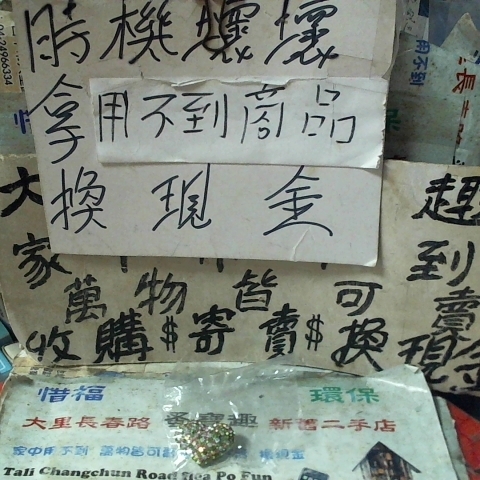 時機壞壞
拿用不到商品
換現金
大家
趕到賣
萬物皆可
收購$寄賣$換現金
惜福 環保
大里長春路 蚤寶趣 新舊二手店
家中用不到 萬物皆可
Tali Changchun Road Flea Po Fun